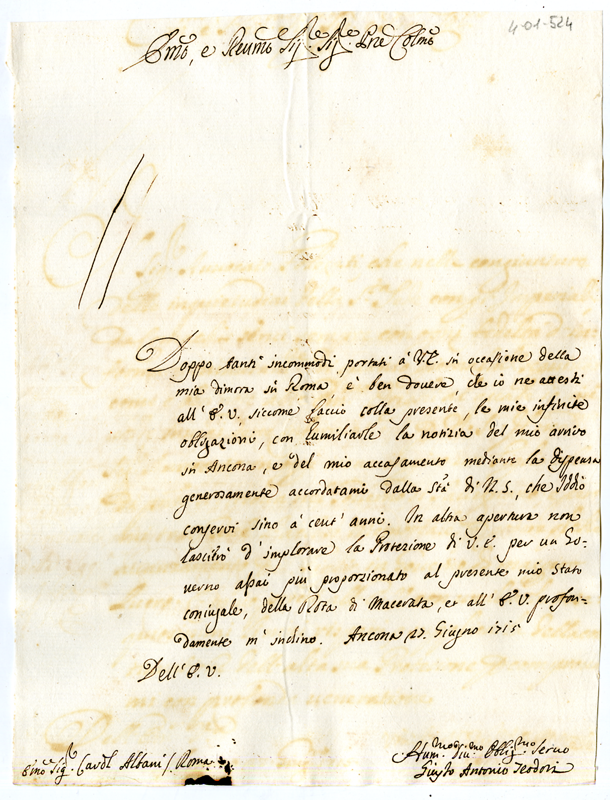 4-01-524
Emo, e Reumo Sig.re Sig.re Pne Colmo
Doppo tanti incommodi portati à V.E. in occasione della
mia dimora in Roma è ben douere, che io ne attesti
all' E.V. siccome faccio colla presente, le mie infinite
obligazioni, con humiliarle la notizia del mio arriuo
in Ancona, e del mio accasamento mediante la dispensa
generosamente accordatami dalla Stà di N.S., che Iddio
conserui sino à cent' anni. In altra apertura non
lascierò d'implorare la Protezione di V.E. per un Go-
uerno assai più proporzionato al presente mio stato
coniugale, della Rota di Macerata, et all' E.V. profon-
damente m' inchino. Ancona 27. Giugno 1715
Dell' E.V.
Emo Sig.r Cardl Albani /. Roma
Hum.mo Diu.mo Oblig.mo Seruo
Giusto Antonio Teodori